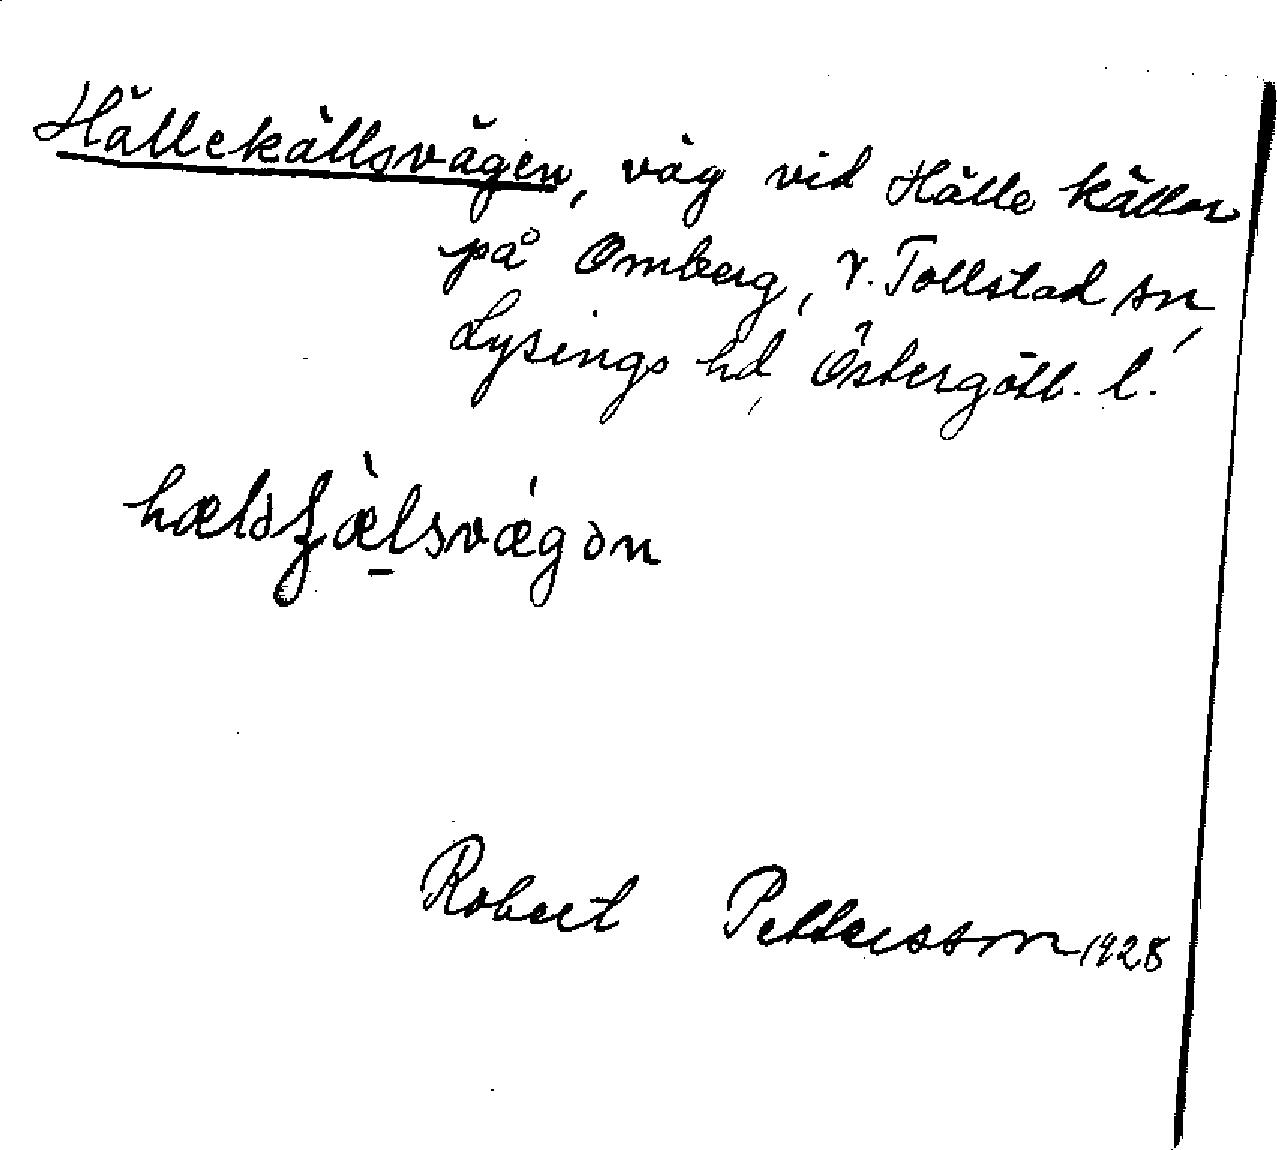 Hällekällsvägen, väg vid Hälle källor
på Omberg, V. Tollstad sn,
Lysings hd, Östergötl. l.
Robert Pettersson 1928